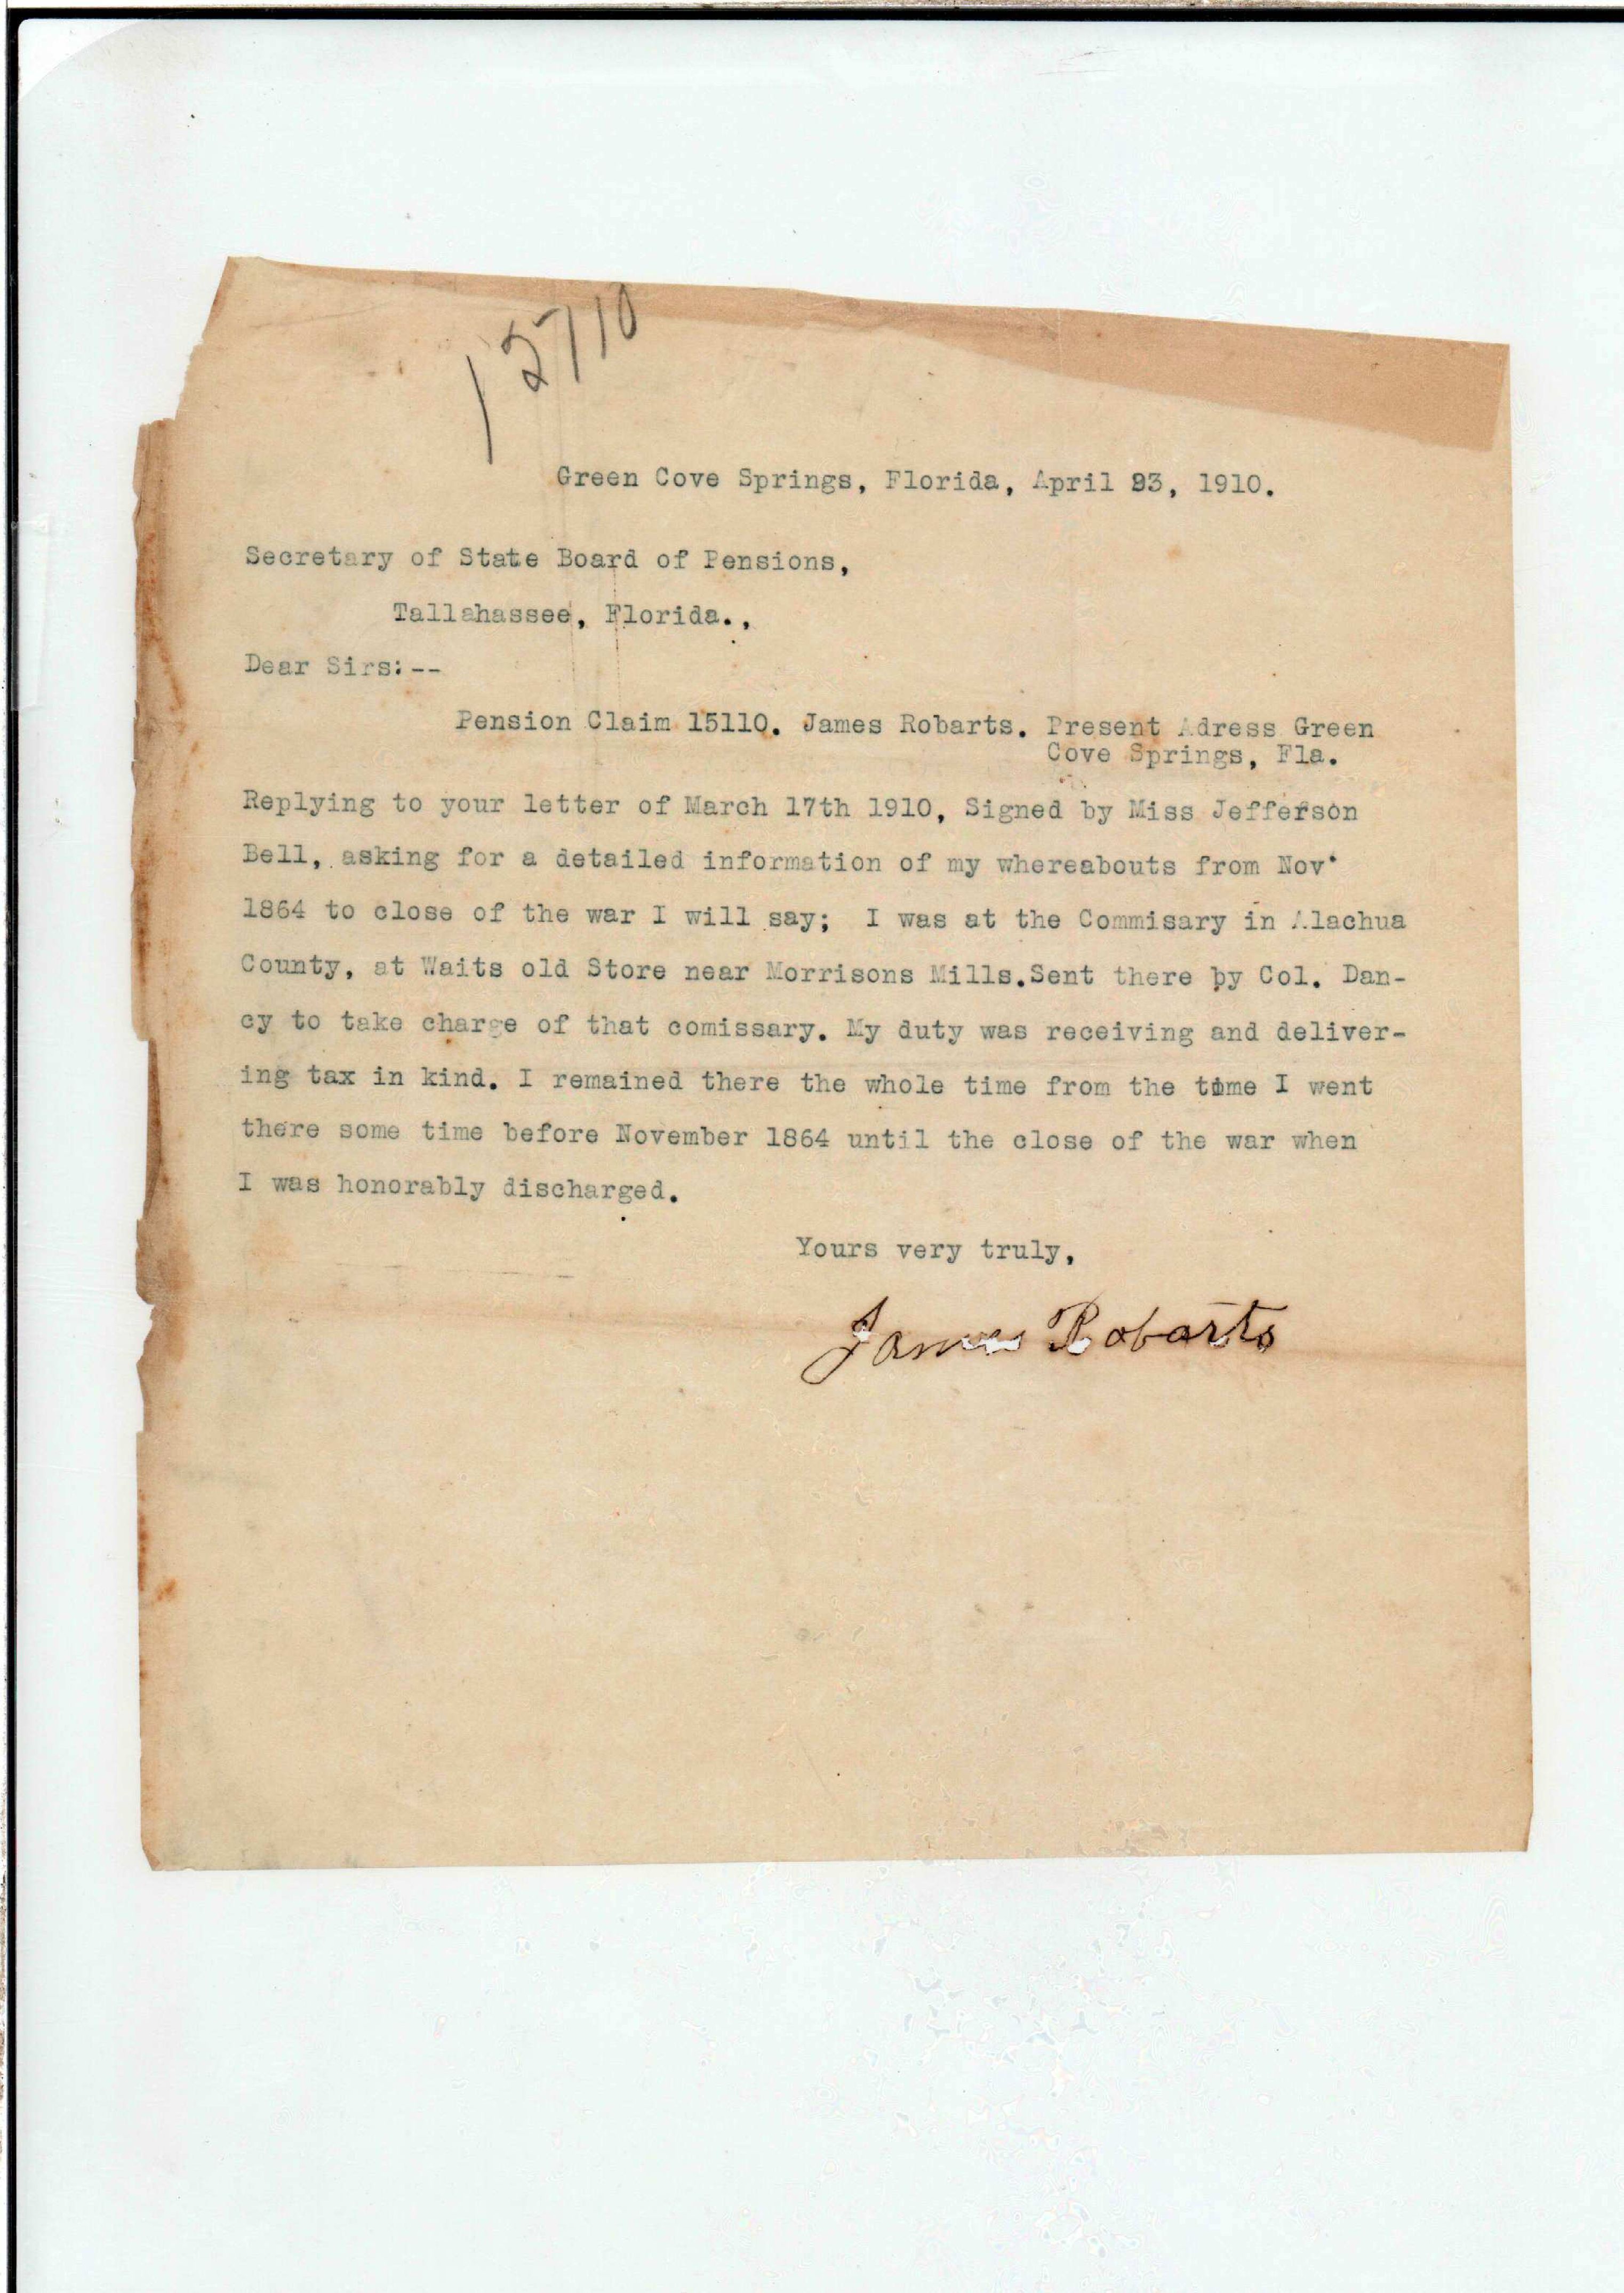 12710
Green Cove Springs, Florida, April 23, 1910.
Secretary of State Board of Pensions,
Tallahassee, Florida.,
Dear Sirs:--
Pension Claim 15110. James Robarts. Present Adress Green
Cove Springs, Fla.
Replying to your letter of March 17th 1910, Signed by Miss Jefferson
Bell, asking for a detailed information of my whereabouts from Nov.
1864 to close of the war I will say; I was at the Commisary in Alachua
County, at Waits old Store near Morrisons Mills.Sent there by Col. Dan-
cy to take charge of that comissary. My duty was receiving and deliver-
ing tax in kind. I remained there the whole time from the time I went
there some time before November 1864 until the close of the war when
I was honorably discharged.
Yours very truly,
James Robarts